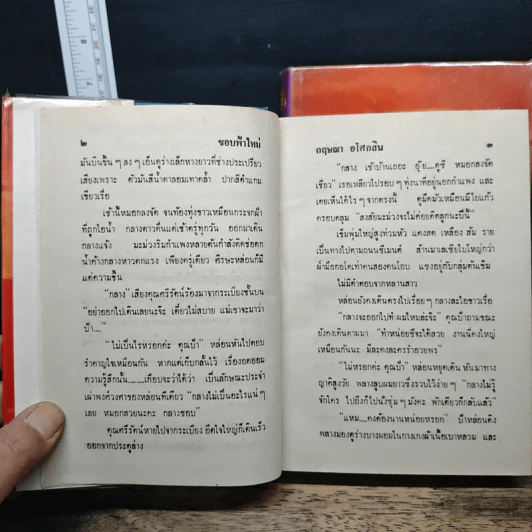 ๒ ขอบฟ้าใหม่
มันบินขึ้น ๆ ลง ๆ เย็นดูร่างเล็กหางยาวที่ช่างประเปรียว
เสียงเพราะ ตัวมันสีน้ำตาลอมเทาคล้ำ ปากสีดำแกม
เขียวเรื่อ
เช้านี้หมอกลงจัด จนท้องทุ่งขาวเหมือนกระจกฝ้า
ที่ถูกไอน้ำ กลางดาวตื่นแต่เช้าตรู่ทุกวัน ออกมาเดิน
กลางแจ้ง มะม่วงริมกำแพงหลายต้นกำลังติดช่อดก
น้ำค้างกลางหาวตกแรง เพียงครู่เดียว ศีรษะหล่อนก็มี
แต่ความชื้น
“กลาง” เสียงคุณศรีรัตน์ร้องมาจากระเบียงชั้นบน
“อย่าออกไปเดินเลยนะจ๊ะ เดี๋ยวไม่สบาย แม่เขาจะมาว่า
ป้า....”
“ไม่เป็นไรหรอกค่ะ คุณป้า” หล่อนหันไปตอบ
รำคาญใจเหมือนกัน หากแต่เก็บกลั้นไว้ เรื่องอดออม
ความรู้สึกนั้น........เกือบจะว่าได้ว่า เป็นลักษณะประจำ
เผ่าพงศ์วงศาของหล่อนทีเดียว “กลางไม่เป็นอะไรแน่ ๆ
เลย หมอกสวยนะคะ กลางชอบ”
คุณศรีรัตน์หายไปจากระเบียง อึดใจใหญ่ก็เดินเร็ว
ออกจากประตูล่าง
กฤษณา อโศกสิน ๓
“กลาง เข้าบ้านเถอะ อุ๊ย....ดูซี หมอกลงจัด
เชียว” เธอเหลียวไปรอบ ๆ ทุ่งนาที่อยู่นอกกำแพง และ
เคยเห็นได้ไร ๆ จากตรงนี้ ดูมืดมัวเหมือนมีใยแก้ว
ครอบคลุม “สงสัยมะม่วงจะไม่ค่อยติดลูกนะปีนี้”
เข็มพุ่มใหญ่สูงท่วมหัว แดงสด เหลือง ส้ม ราย
เป็นทางไปตามถนนซีเมนต์ ส้านมาเลเซียใบใหญ่กว่า
ฝ่ามือกอโตเท่าคนสองคนโอบ แซงอยู่กับกลุ่มต้นเข็ม
ไม่มีคำตอบจากหลานสาว
หล่อนยังคงเดินตรงไปเรื่อย ๆ กลางละไอขาวเรื่อ
“กลางจะออกไปทำผมไหมล่ะจ๊ะ” คุณป้าถามขณะ
ยังคงเดินตามมา “ทำหน่อยซีจะได้สวย งานนี้คงใหญ่
เหมือนกันนะ มีละคงละครรำอวยพร”
“ไม่หรอกค่ะ คุณป้า” หล่อนหยุดเดิน หันมาทาง
ญาติสูงวัย พลางลูบผมยาวซึ่งรวบไว้ง่าย ๆ “กลางไม่รู้
จักใคร ไปถึงก็ไปนั่งซุ่ม ๆ มังคะ พักเดียวก็กลับแล้ว”
“แหม....คงต้องนานหน่อยหรอก” ป้าหล่อนติง
พลางมองดูร่างบางผอมในกางเกงผ้าเนื้อเบาหลวม และ